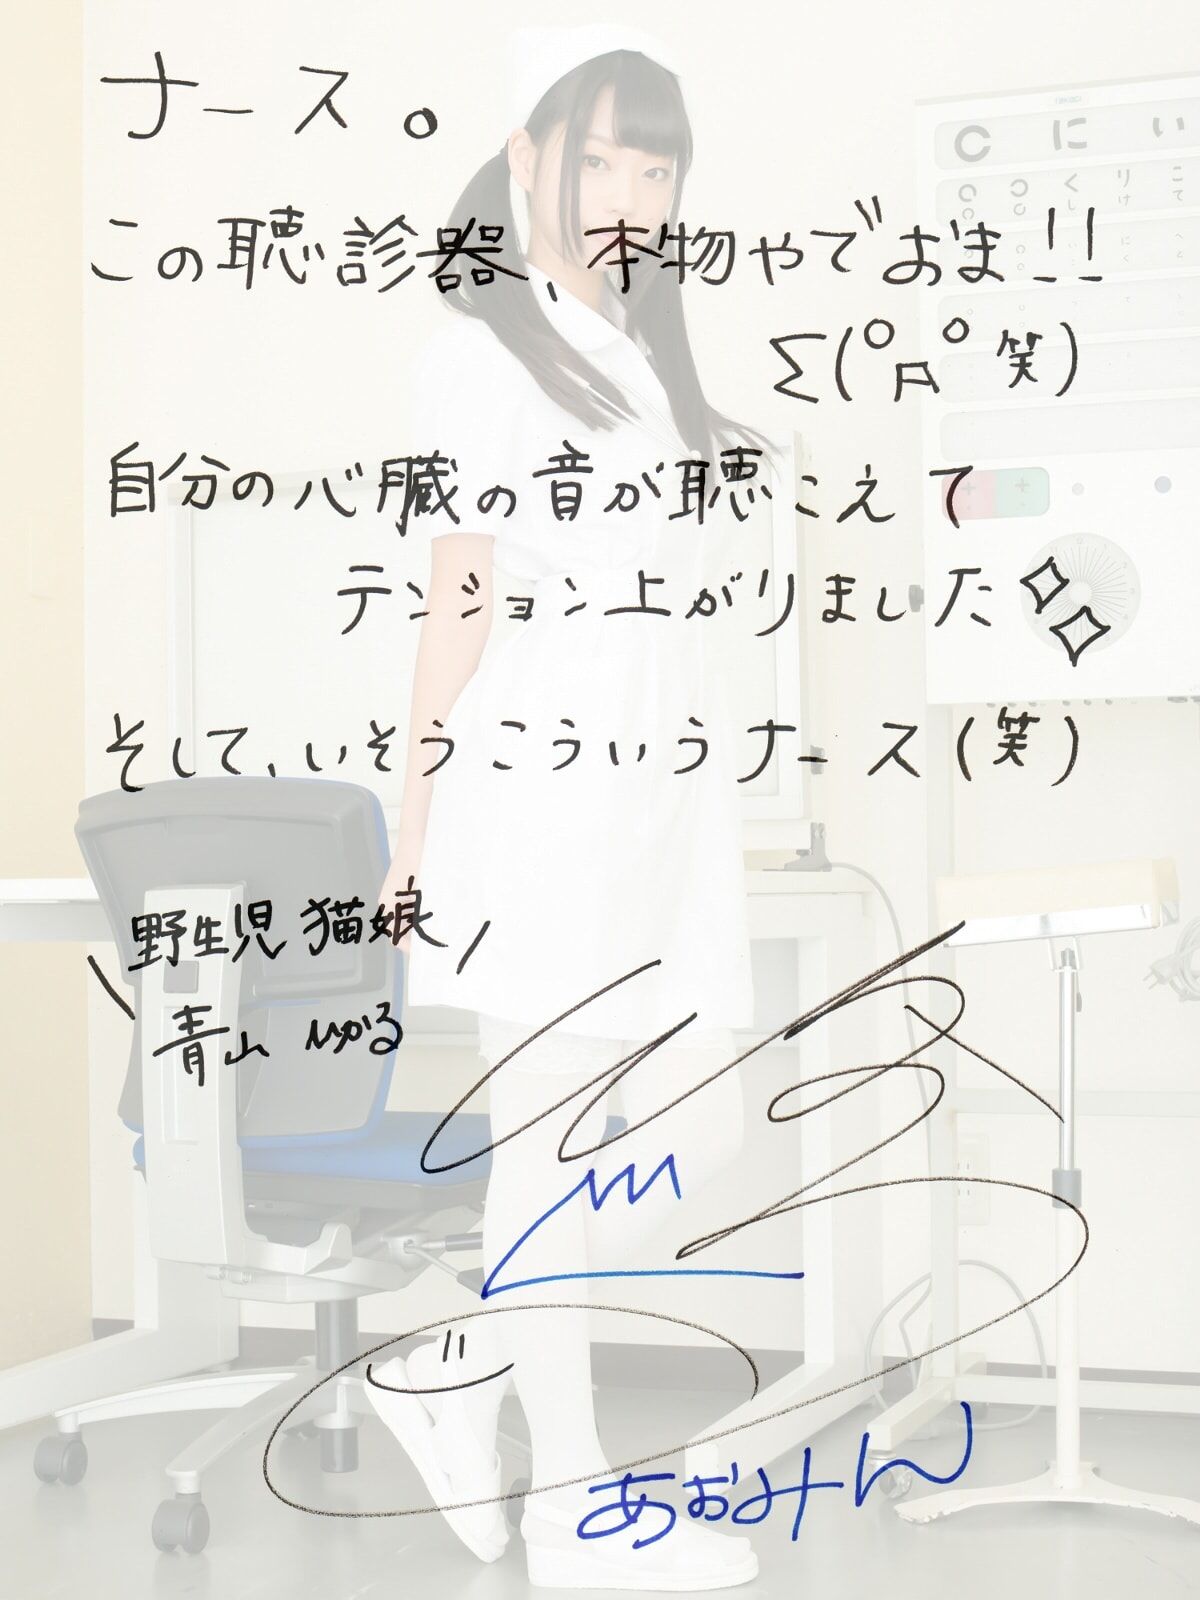 ナース。
この聴診器、本物やでおま!!
Σ(°д°笑)
自分の心臓の音が聴こえて
テンション上がりました
そして、いそうこういうナース(笑)
野生児 猫娘
青山 ひかる
あおみん
takagi
C に い
く り こ
し け て